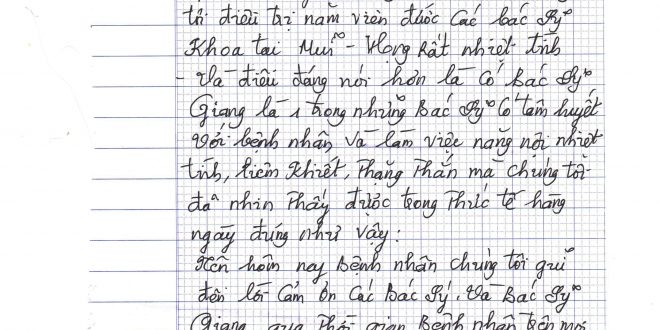 tôi điều trị nằm viện được Các bác sỹ
Khoa tai Mũi - Họng Rất nhiệt tình
- Và điều đáng nói hơn là Có Bác sỹ
Giang là 1 trong những Bác sỹ Có tâm huyết
Với bệnh nhân Và làm việc năng nổi nhiệt
tình, liêm Khiết, Thẳng Thắn mà chúng tôi
đã nhìn Thấy được trong Thực tế hàng
ngày đúng như Vậy:
Nên hôm nay Bệnh nhân chúng tôi gửi
đến lời Cảm ơn Các Bác sỹ, Và Bác sỹ
Giang qua Thời gian Bệnh nhân trên mọi